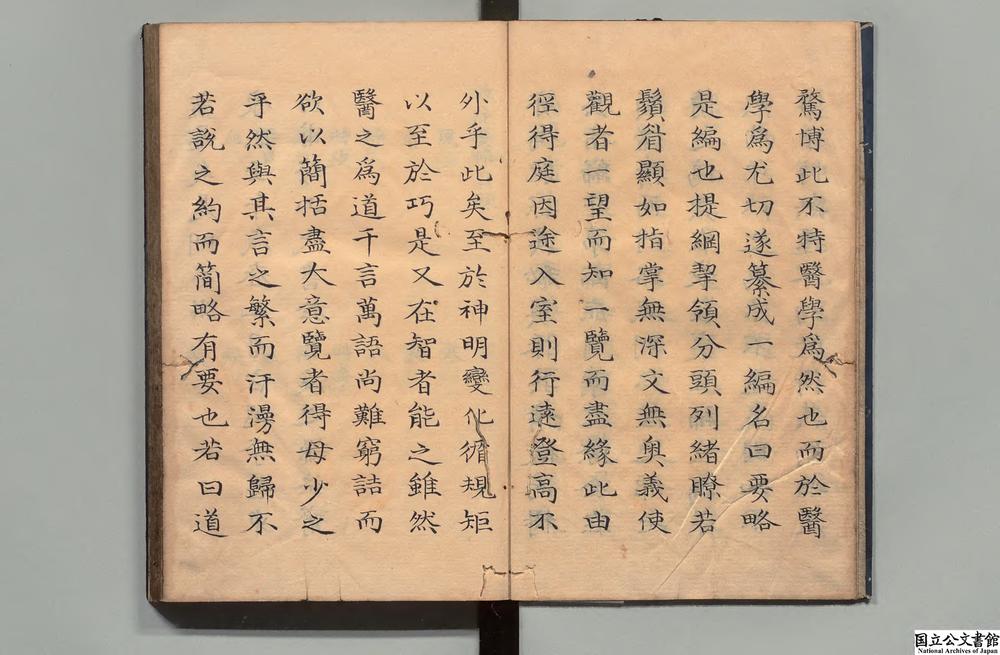 騖博此不特醫學爲然也而於醫
學爲尤切遂纂成一編名曰要略
是編也提綱挈領分頭列緒瞭若
鬚眉顯如指掌無深文無奧義使
觀者一望而知一覽而盡緣此由
徑得庭因途入室則行遠登高不
外乎此矣至於神明變化循規矩
以至於巧是又在智者能之雖然
醫之爲道千言萬語尚難窮詰而
欲以簡括盡大意覽者得毋少之
乎然與其言之繁而汗漫無歸不
若說之約而簡略有要也若曰道
国立公文書館
National Archives of Japan